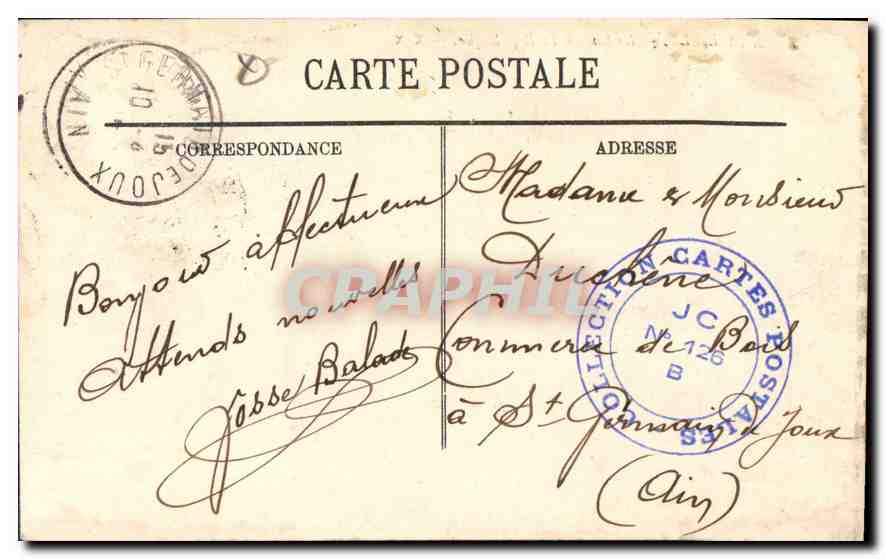 CARTE POSTALE
CORRESPONDANCE
ADRESSE
Bonjour affectueux
Attends nouvelles
Madame & Monsieur
Duchêne
Commerce de Bois
à St Germain de Joux
(Ain)
ST GERMAIN DE JOUX
AIN
15
COLLECTION CARTES POSTALES
JC
No 126
B
CPAPHIL